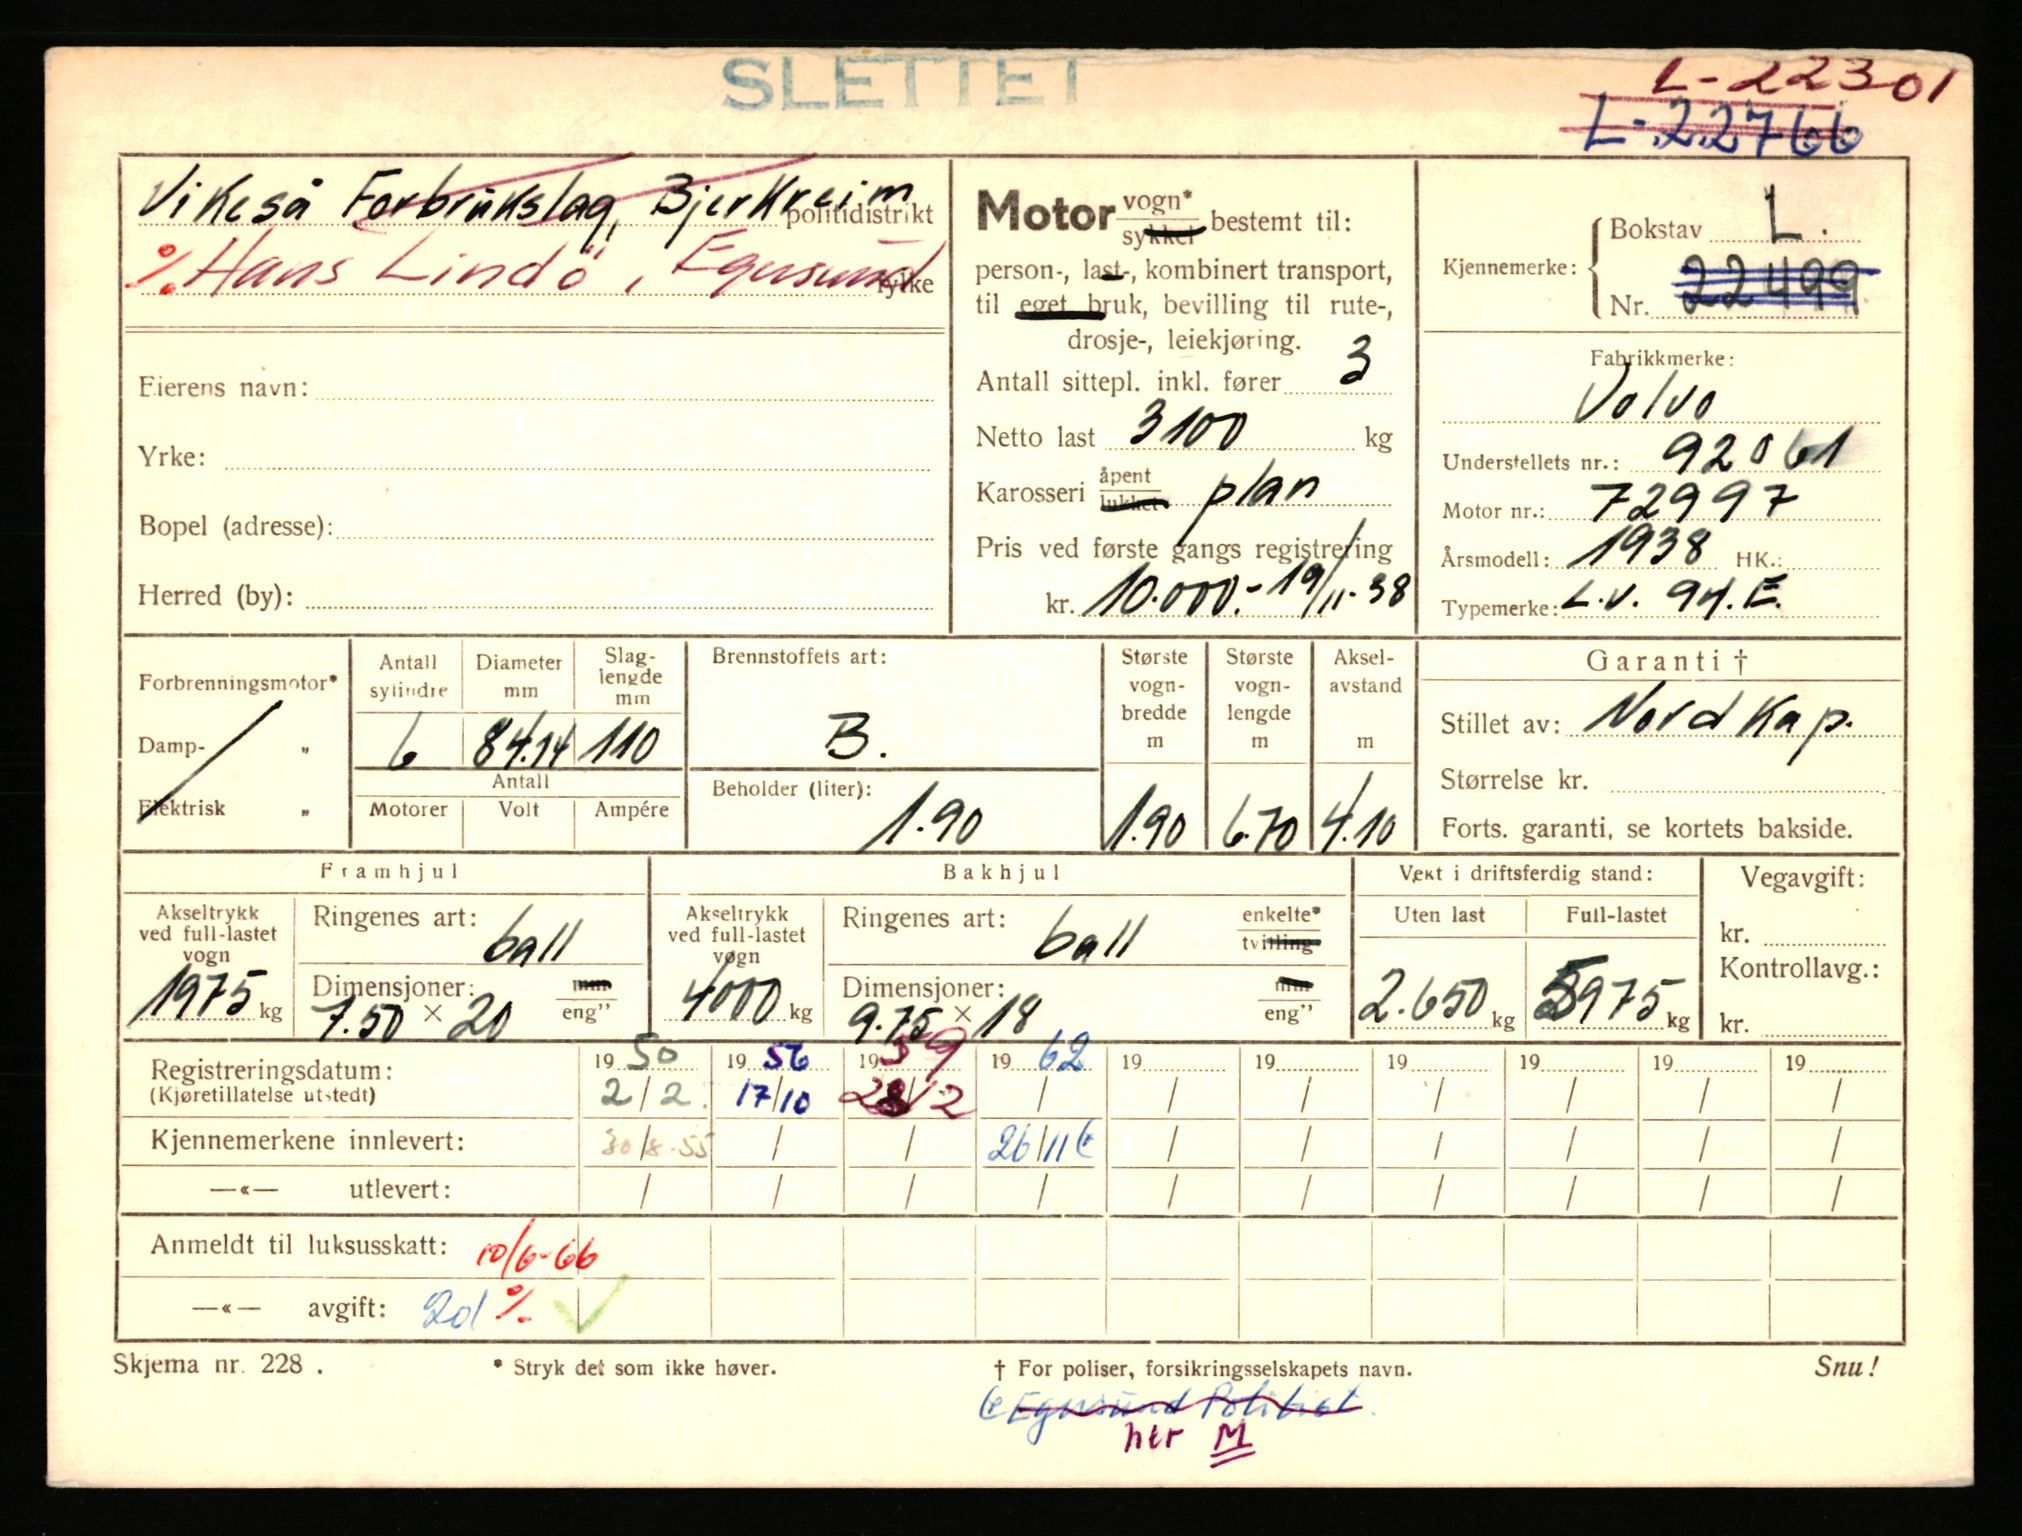 SLETTET
L-22301
L-22766
Vikeså Forbrukslag, Bjerkreim politidistrikt
% Hans Lindö, Egersund fylke
Eierens navn:
Yrke:
Bopel (adresse):
Herred (by):
Motor vogn* sykkel bestemt til:
person-, last-, kombinert transport,
til eget bruk, bevilling til rute-,
drosje-, leiekjøring.
Antall sittepl. inkl. fører 3
Netto last 3100 kg
Karosseri åpent lukket plan
Pris ved første gangs registrering
kr. 10.000.- 19/11-38
Kjennemerke: Bokstav L.
Nr. 22499
Fabrikkmerke:
Volvo
Understellets nr.: 92061
Motor nr.: 72997
Årsmodell: 1938 HK.:
Typemerke: L.v. 94.E.
Forbrenningsmotor*
Damp- „
Elektrisk „
Antall sylindre 6
Diameter mm 84.14
Slaglengde mm 110
Antall
Motorer Volt Ampére
Brennstoffets art:
B.
Beholder (liter):
1.90
Største vognbredde m 1.90
Største vognlengde m 6.70
Akselavstand m 4.10
Garanti †
Stillet av: Nordkap.
Størrelse kr.
Forts. garanti, se kortets bakside.
Framhjul
Akseltrykk ved full-lastet vogn 1975 kg
Ringenes art: ball
Dimensjoner: mm eng”
7.50 × 20
Bakhjul
Akseltrykk ved full-lastet vogn 4000 kg
Ringenes art: ball enkelte* tvilling
Dimensjoner: mm eng”
9.75 × 18
Vekt i driftsferdig stand:
Uten last 2.650 kg
Full-lastet 5975 kg
Vegavgift:
kr.
Kontrollavg.:
kr.
Registreringsdatum: 19 50 19 56 19 59 19 62 19 19 19 19 19 19
(Kjøretillatelse utstedt) 2/2 17/10 28/2 / / / / / / /
Kjennemerkene innlevert: 30/8-55 / / 26/11 / / / / / /
—«— utlevert: / / / / / / / / / /
Anmeldt til luksusskatt: 10/6-66
—«— avgift: %
Skjema nr. 228 . * Stryk det som ikke høver. † For poliser, forsikringsselskapets navn. Snu!
Egersund Politist.
her M